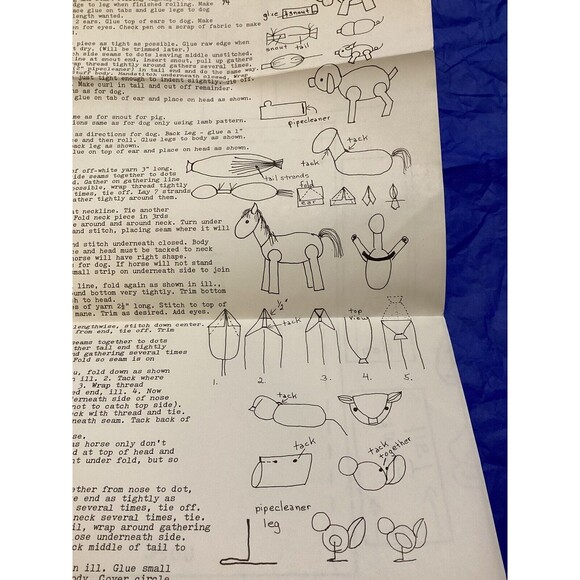 edge to leg when finished rolling. Make
ace glue on tabs and glue legs to dog
length wanted.
2 ears. Glue top of ears to dog. Make
on for eyes. Check pen on a scrap of fabric to make
glue
snout
piece as tight as possible. Glue raw edge when
t dry. (Will be trimmed later.)
ch side seams to dots leaving middle unstitched.
line at snout end, insert snout, pull up gathers
wrap thread tightly around gathers several times,
(2" pipecleaner) in tail end and do the same way,
tuff body. Handstitch underneath closed. Wrap
just tight enough to indent slightly. Tie off.
. Make curl in tail and cut off remainder.
as for dog.
glue on tab of ear and place on head as shown.
snout tail
pipecleaner
ame as for snout for pig.
ions same as for dog only using lamb pattern.
as directions for dog. Back leg - glue a 1"
e and then roll. Glue legs to body as shown.
ack leg as shown.
lue on top of ear and place on head as shown.
tack
tack
of off-white yarn 3" long.
side seams together to dots
d. Gather on gathering line
possible, wrap thread tightly
times, tie off. Lay 7 strands
ather tightly around them.
tail strands
fold
ear
at neckline. Tie another
Fold neck piece in 3rds
e around and around neck. Turn under
and stitch, placing seam where it will
nd stitch underneath closed. Body
ce and head must be tacked to neck
horse will have right shape.
on for dog. If horse will not stand
small strip on underneath side to join
line, fold again as shown in ill.,
ound bottom very tightly. Trim bottom
h to head.
es of yarn 2½" long. Stitch to top of
mane. Trim as desired. Add eyes.
½"
tack
top view
1.
2
3.
4.
5.
lengthwise, stitch down center.
from end, tie off. Trim
seams together to dots
ther tail end tightly
nd gathering several times
Fold so seam is on
u, fold down as shown
n ill. 2. Tack where
3. Wrap thread
ed end, ill. 4. Now
derneath side of nose
not to catch top side).
ck with thread and tie.
neath seam. Tack back of
tack
se.
as horse only don't
d at top of head and
nt under fold, but so
tack
tack together
ether from nose to dot,
e end as tightly as
several times, tie off.
neck several times, tie.
il, wrap around gathering
ose underneath side.
ck middle of tail to
pipecleaner
leg
n ill. Glue small
ody. Cover circle